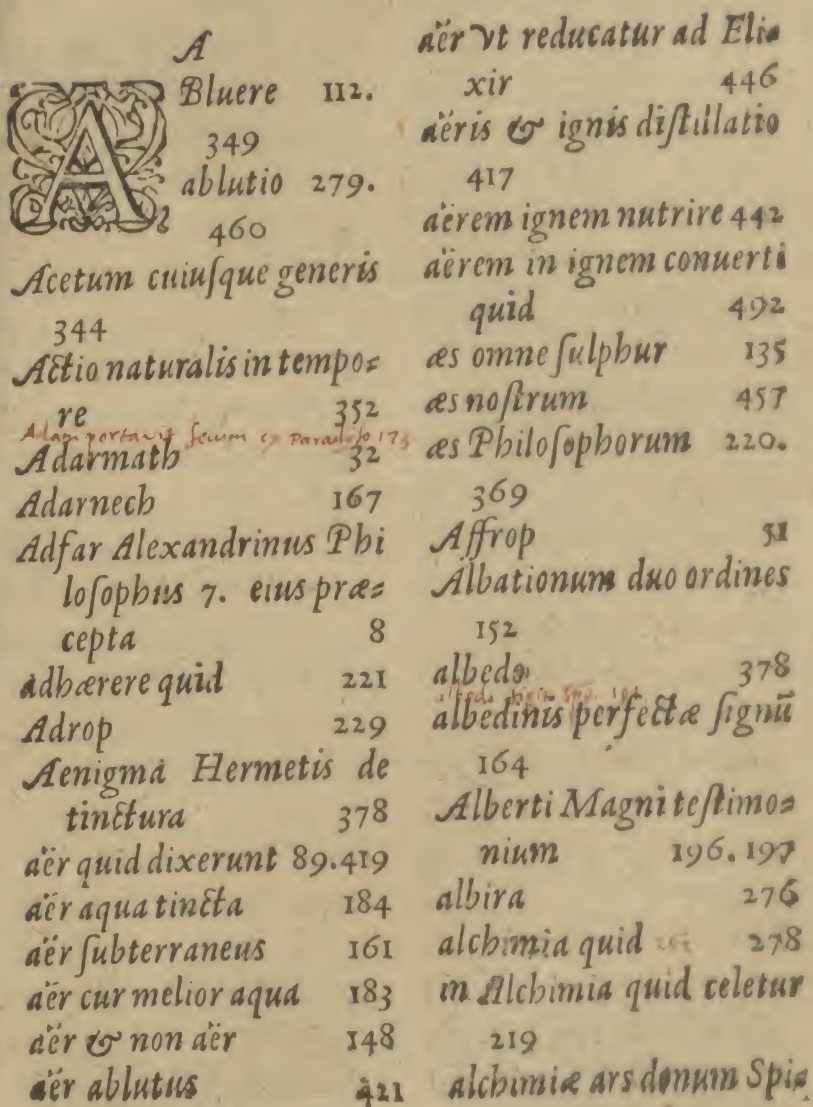 A
ABluere 112.
349
ablutio 279.
460
Acetum cuiuſque generis
344
Actio naturalis in tempo=
re 352
Adam portavit ex Paradiso 175
Adarmath 32
Adarnech 167
Adfar Alexandrinus Phi
loſophus 7. eius præ=
cepta 8
adhærere quid 221
Adrop 229
Aenigma Hermetis de
tinctura 378
aër quid dixerunt 89.419
aër aqua tincta 184
aër ſubterraneus 161
aër cur melior aqua 183
aër & non aër 148
aër ablutus 421
aër vt reducatur ad Eli=
xir 446
aëris & ignis diſtillatio
417
aërem ignem nutrire 442
aërem in ignem conuerti
quid 492
æs omne ſulphur 135
æs noſtrum 457
æs Philoſophorum 220.
369
Affrop 51
Albationum duo ordines
152
albedo 378
albedo
albedinis perfectæ ſignũ
164
Alberti Magni teſtimo=
nium 196.197
albira 276
alchimia quid 278
in Alchimia quid celetur
219
alchimiæ ars donum Spi=